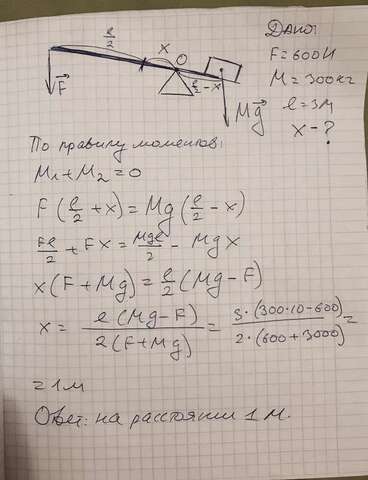 Дано:
F = 600 Н
M = 300 кг
ℓ = 3 м
x - ?
ℓ/2
x
O
ℓ/2 - x
F⃗
Mg⃗
По правилу моментов:
M₁ + M₂ = 0
F(ℓ/2 + x) = Mg(ℓ/2 - x)
Fℓ/2 + Fx = Mgℓ/2 - Mgx
x(F + Mg) = ℓ/2 (Mg - F)
x = ℓ(Mg - F)/2(F + Mg) = 3·(300·10 - 600)/2·(600 + 3000) =
= 1 м
Ответ: на расстоянии 1 м.